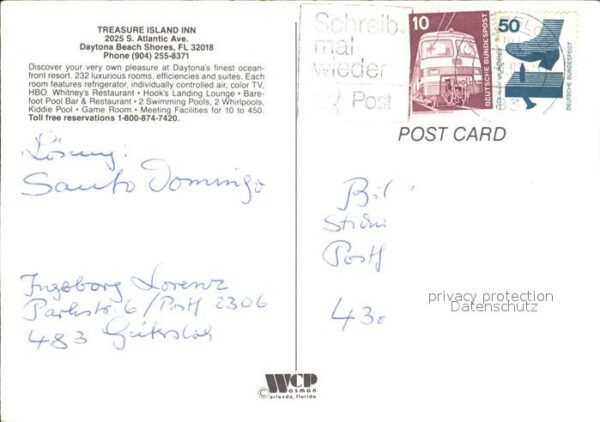 TREASURE ISLAND INN
2025 S. Atlantic Ave.
Daytona Beach Shores, FL 32018
Phone (904) 255-8371
Discover your very own pleasure at Daytona's finest ocean-
front resort. 232 luxurious rooms, efficiencies and suites. Each
room features refrigerator, individually controlled air, color TV,
HBO. Whitney's Restaurant • Hook's Landing Lounge • Bare-
foot Pool Bar & Restaurant • 2 Swimming Pools, 2 Whirlpools,
Kiddie Pool • Game Room • Meeting Facilities for 10 to 450.
Toll free reservations 1-800-874-7420.
Lösung:
Santo Domingo
Ingeborg Lorenz
Parkstr. 6 / Postf 2306
483 Gütersloh
Schreib
mal
wieder
Post
10
DEUTSCHE BUNDESPOST
50
DEUTSCHE BUNDESPOST
POST CARD
Bil
Postf
430
privacy protection
Datenschutz
WCP
orlando, florida